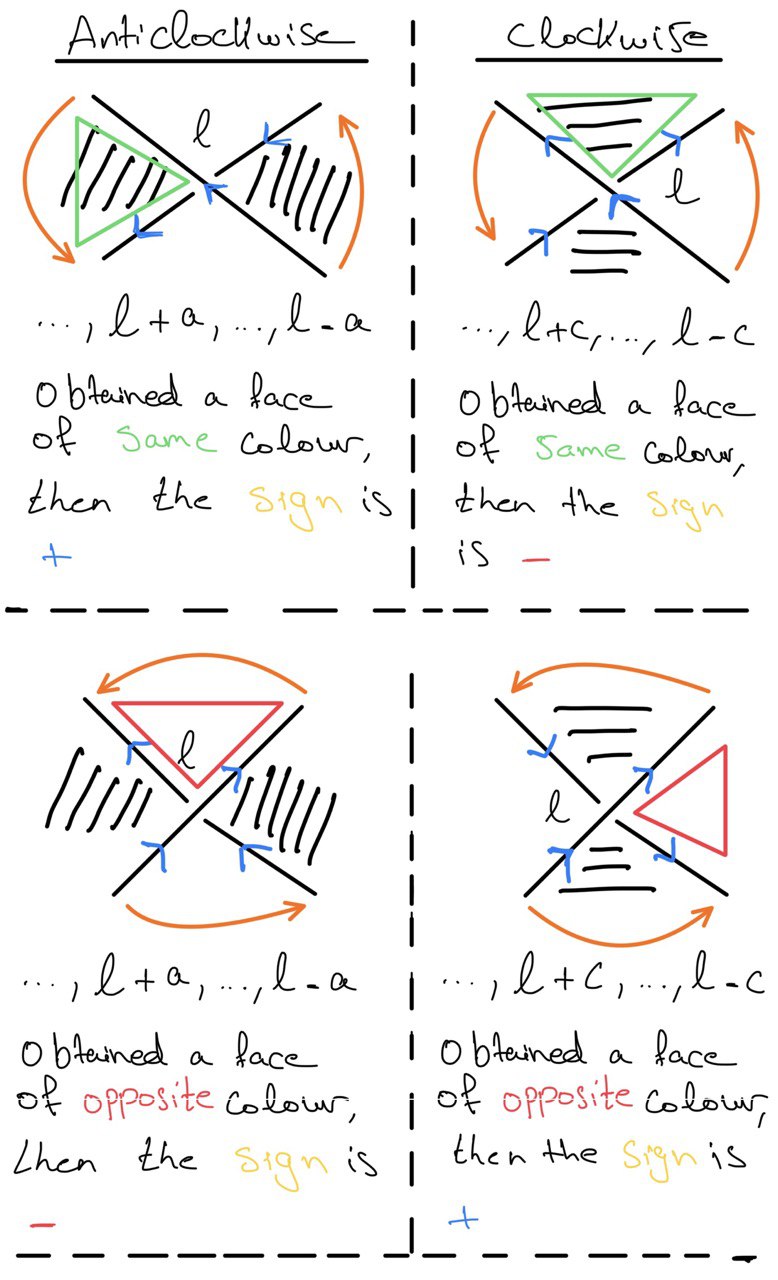 Anticlockwise
l
..., l + a, ..., l - a
Obtained a face
of same colour,
then the sign is
+
Clockwise
l
..., l+c, ..., l - c
Obtained a face
of same colour,
then the sign
is -
l
..., l + a, ..., l - a
Obtained a face
of opposite colour,
then the sign is
-
l
..., l + c, ..., l - c
Obtained a face
of opposite colour,
then the sign is
+